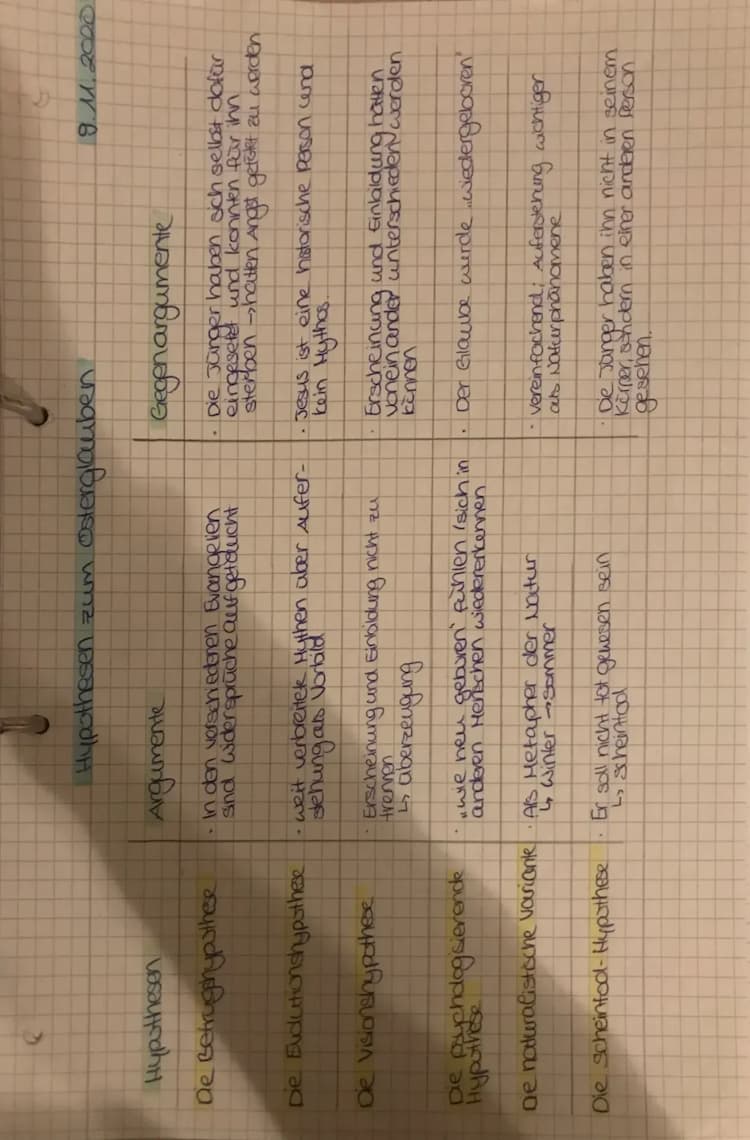 Hypothesen zum Osterglauben
9.11.2020
Hypothesen
Argumente
Gegenargumente
Die Betrugshypothese
· In den verschiedenen Evangelien
sind Widersprüche aufgetaucht
· Die Jünger haben sich selbst dafür
eingesetzt und konnten für ihn
sterben → hatten Angst getötet zu werden
Die Evolutionshypothese
· weit verbreitete Mythen über Aufer-
stehung als Vorbild
· Jesus ist eine historische Person und
kein Mythos
Die Visionshypothese
· Erscheinung und Einbildung nicht zu
trennen
↳ Überzeugung
· Erscheinung und Einbildung hätten
voneinander unterschieden werden
können
Die psychologisierende
Hypothese
· „wie neu geboren" fühlen / sich in
anderen Menschen wiedererkennen
· Der Glaube wurde „wiedergeboren"
Die naturalistische Variante
· Als Metapher der Natur
↳ Winter → Sommer
· vereinfachend; Auferstehung wichtiger
als Naturphänomene
Die Scheintod-Hypothese
· Er soll nicht tot gewesen sein
↳ scheintod
· Die Jünger haben ihn nicht in seinem
Körper, sondern in einer anderen Person
gesehen.